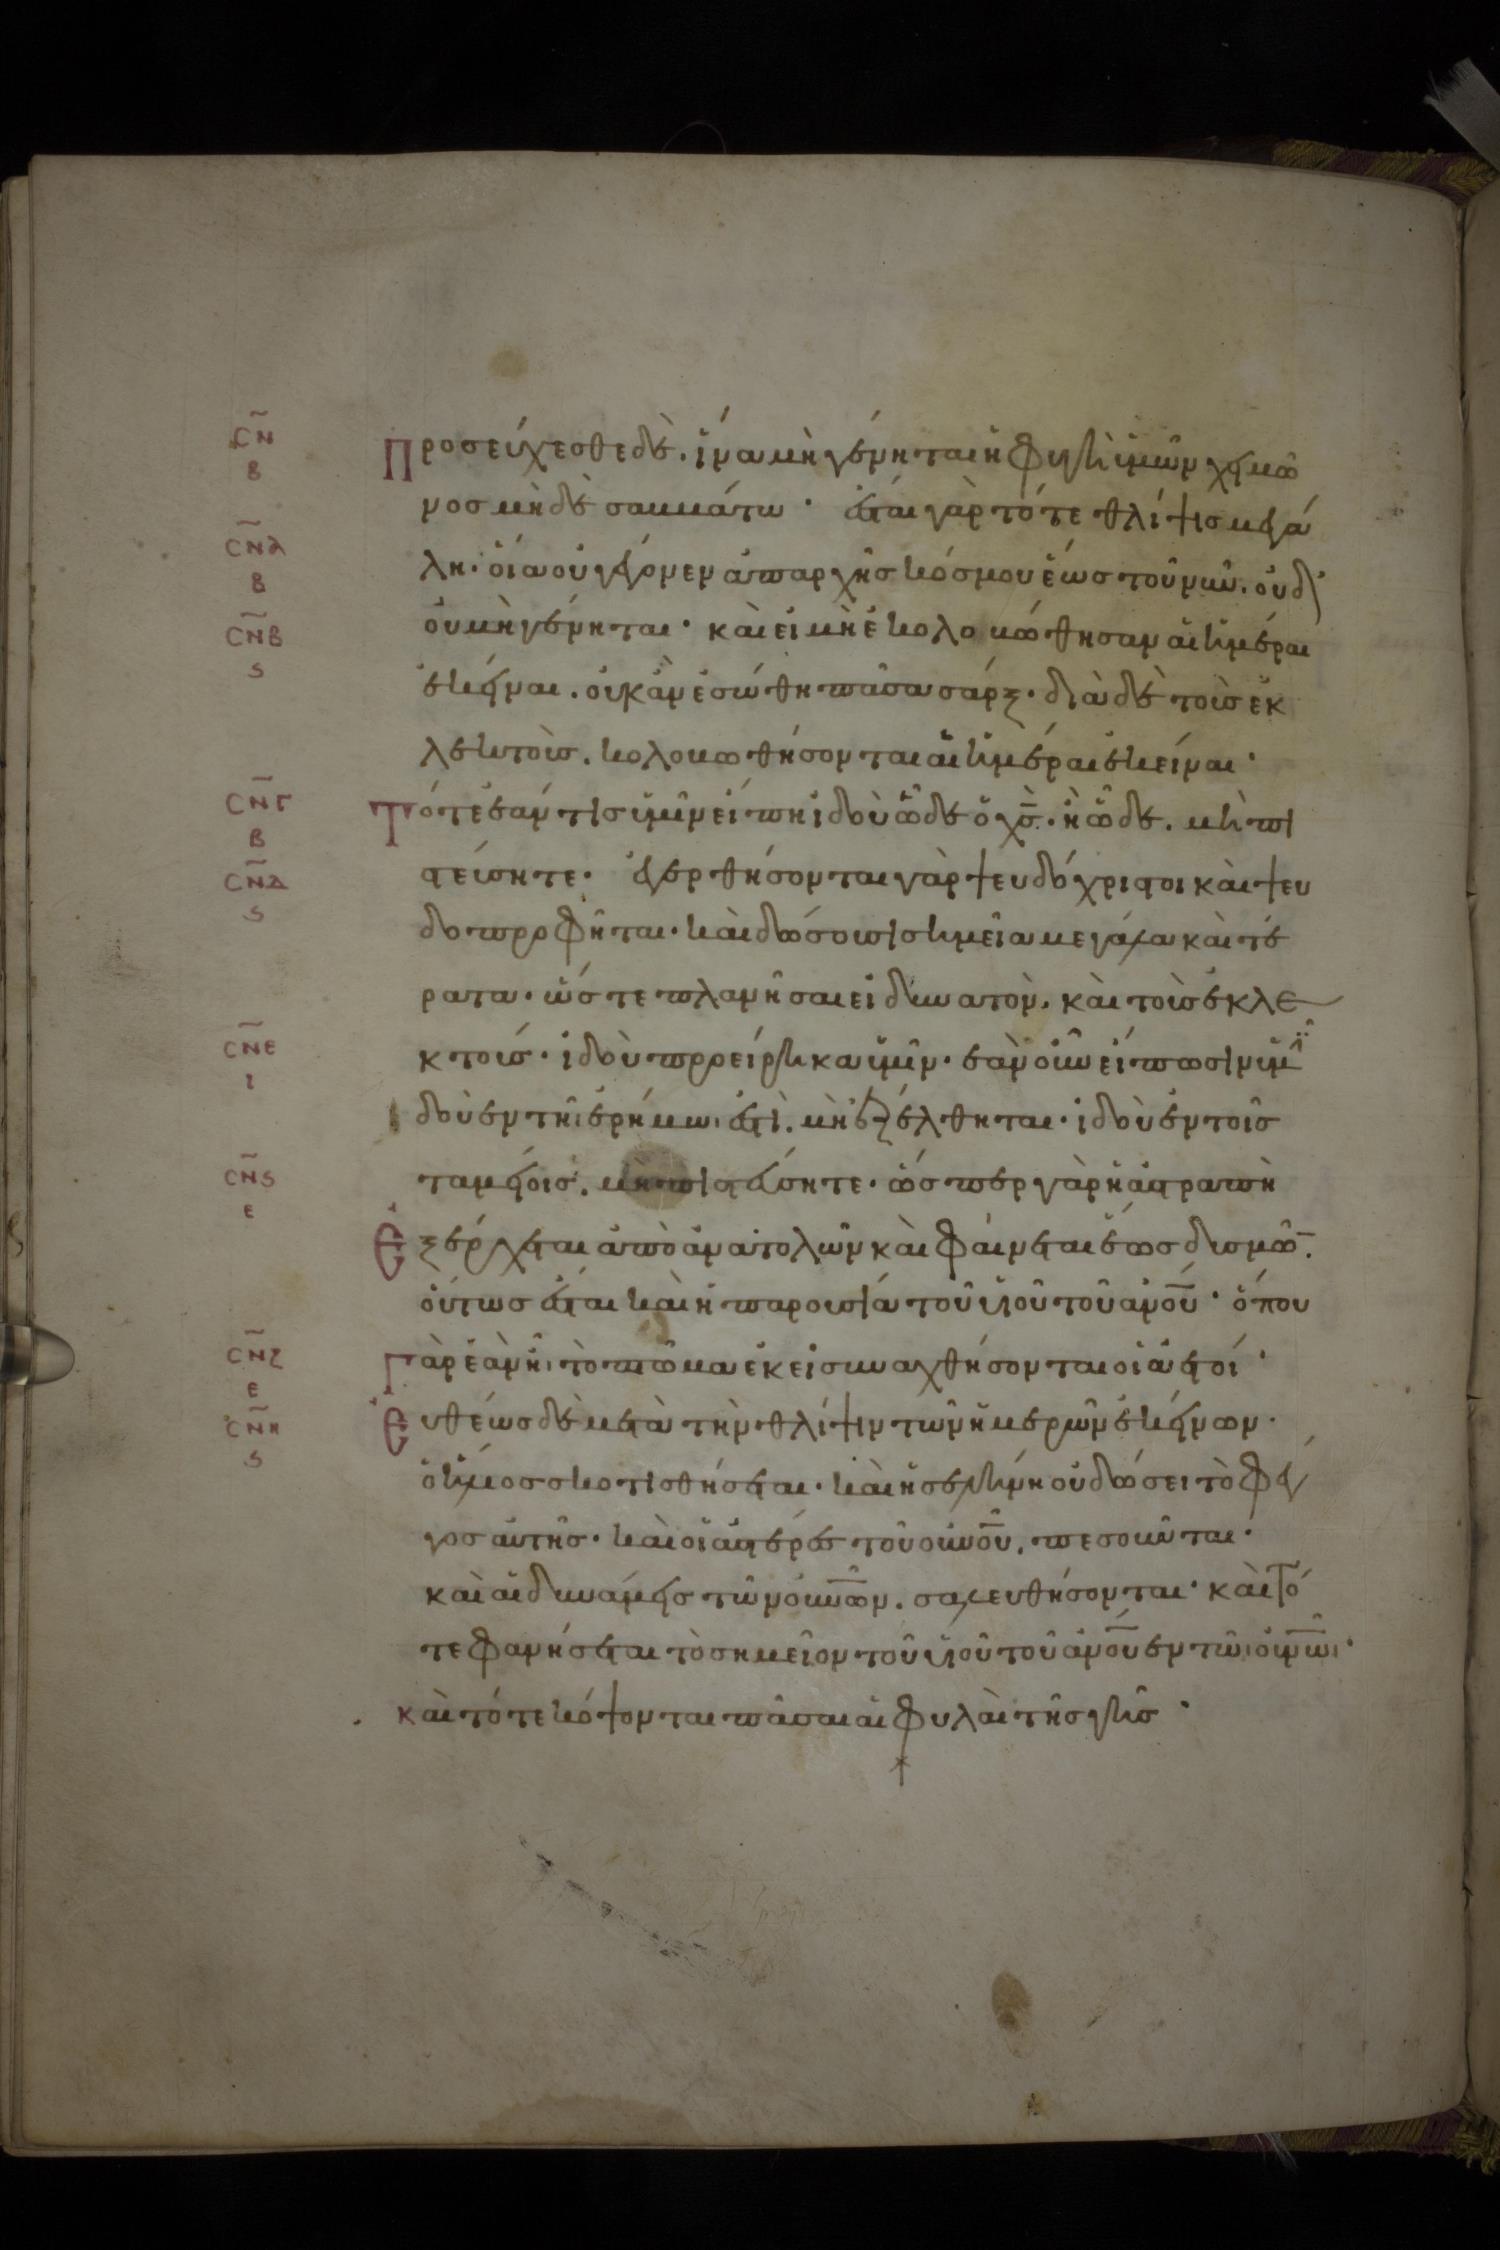 CΝ
Β
Προσεύχεσθε δὲ. ἵνα μὴ γένηται ἡ φυγὴ ὑμῶν χειμῶ
νος μὴ δὲ σαββάτω· ἔσται γὰρ τότε θλίψις μεγά
CΝΑ
Β
λη· οἵα οὐ γέγονεν ἀπαρχῆς κόσμου ἕως τοῦ νῦν. οὐδ'
CΝΒ
Ϛ
οὐ μὴ γένηται· καὶ εἰ μὴ ἐκολοβώθησαν αἱ ἡμέραι
ἐκεῖναι. οὐκ ἂν ἐσώθη πᾶσα σάρξ· διὰ δὲ τοὺς ἐκ
λεκτοὺς. κολοβωθήσονται αἱ ἡμέραι ἐκείναι·
CΝΓ
Β
Τότε ἐάν τις ὑμῖν εἴπη ἰδοὺ ὧδε ὁ χς· ἢ ὧδε. μὴ πι
CΝΔ
Ϛ
στεύσητε· ἐγερθήσονται γὰρ ψευδόχριστοι καὶ ψευ
δοπροφῆται· καὶ δώσουσι σημεῖα μεγάλα καὶ τέ
ρατα· ὥστε πλανῆσαι εἰ δυνατὸν. καὶ τοὺς ἐκλε
CΝΕ
Ι
κτούς· ἰδοὺ προείρηκα ὑμῖν· ἐὰν οὖν εἴπωσιν ὑμῖ ἰ
δοὺ ἐν τῆι ἐρήμωι ἐστὶ. μὴ ἐξέλθηται· ἰδοὺ ἐν τοῖς
CΝϚ
Ε
ταμείοις. μὴ πιστεύσητε· ὥσπερ γὰρ ἡ ἀστραπὴ
Ἐξέρχεται ἀπὸ ἀνατολῶν καὶ φαίνεται ἕως δυσμῶ.
οὕτως ἔσται καὶ ἡ παρουσία τοῦ υἱοῦ τοῦ ἀνου· ὅπου
CΝΖ
Ε
Γὰρ ἐὰν ἦι τὸ πτῶμα ἐκεῖ συναχθήσονται οἱ ἀετοί·
CΝΗ
Ϛ
Εὐθέως δὲ μετὰ τὴν θλίψιν τῶν ἡμερῶν ἐκείνων·
ὁ ἥλιος σκοτισθήσεται· καὶ ἡ σελήνη οὐ δώσει τὸ φέγ
γος αὐτῆς· καὶ οἱ ἀστέρες τοῦ οὐνοῦ. πεσοῦνται·
καὶ αἱ δυνάμεις τῶν οὐνῶν. σαλευθήσονται· καὶ τό
τε φανήσεται τὸ σημεῖον τοῦ υἱοῦ τοῦ ἀνου ἐν τῶι οὐνῶι·
καὶ τότε κόψονται πᾶσαι αἱ φυλαὶ τῆς γῆς·